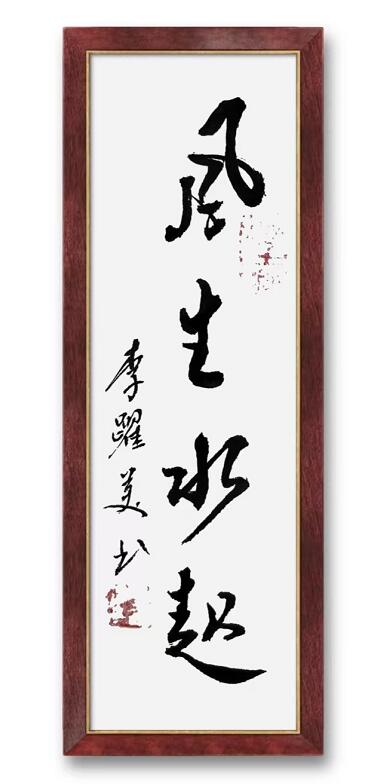 風生水起
李躍美书